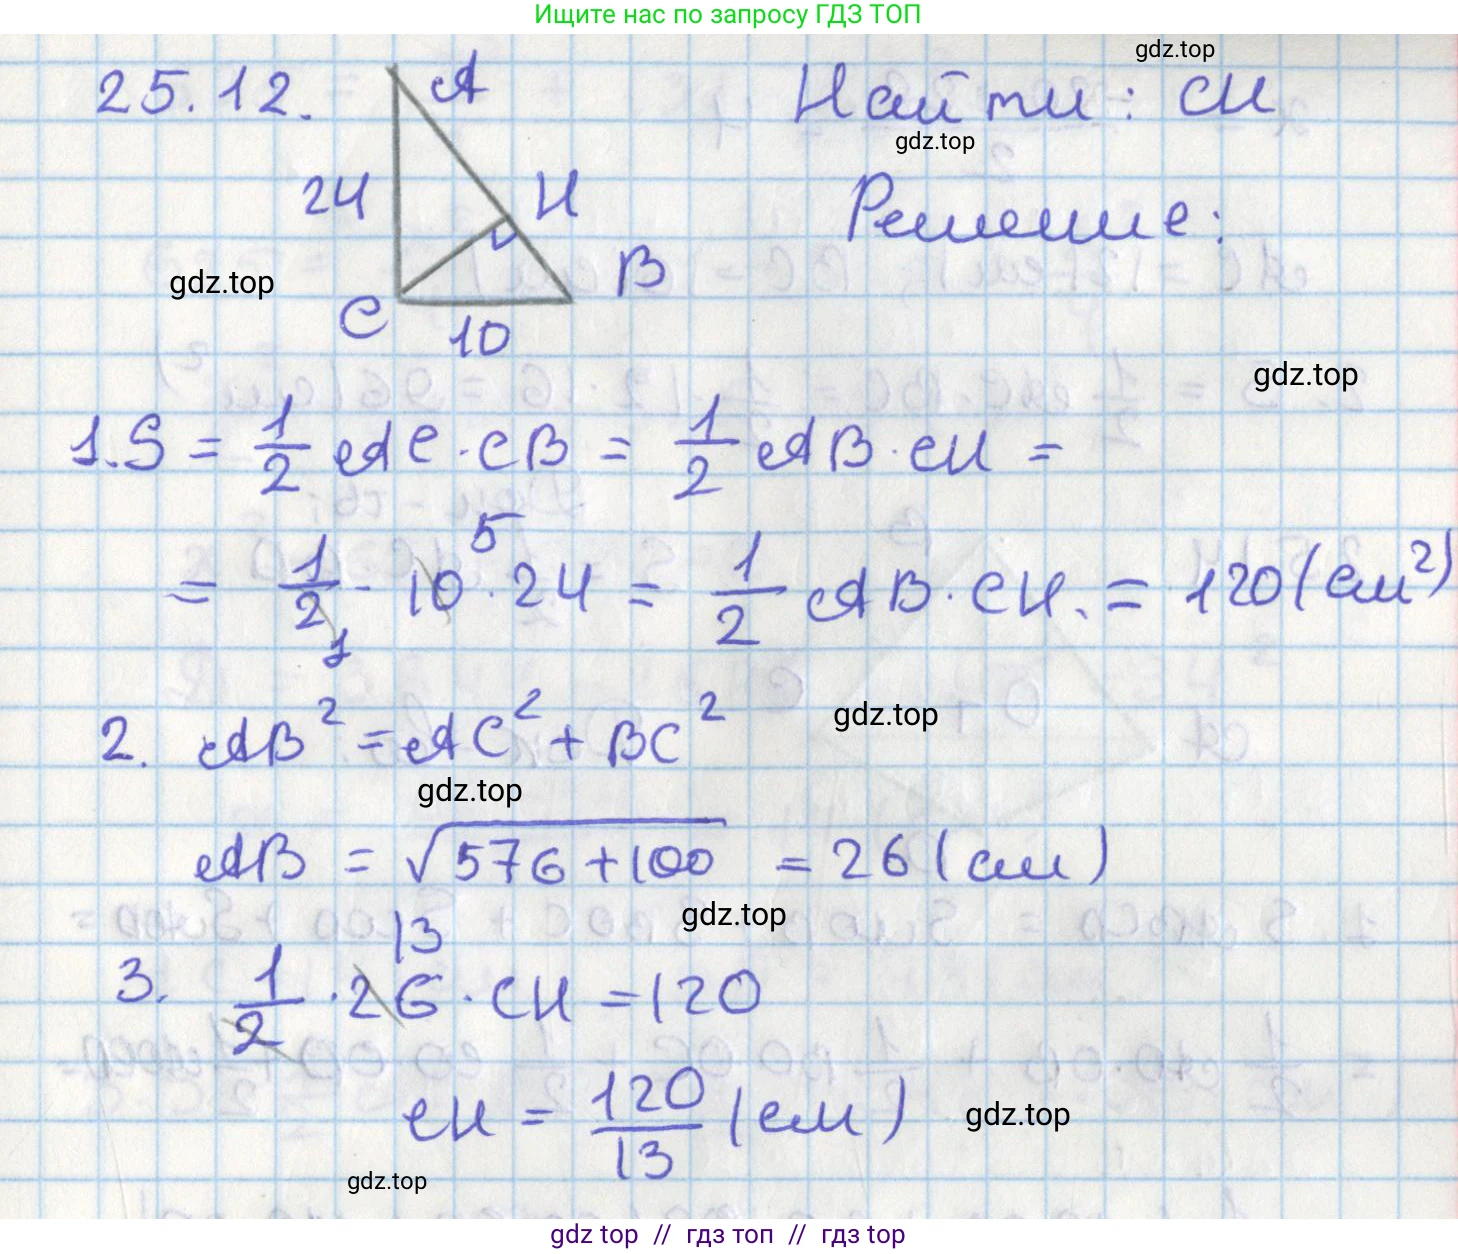 Ищите нас по запросу ГДЗ ТОП
gdz.top
25.12.
A
Найти: CH
gdz.top
24
H
Решение:
gdz.top
B
C
10
gdz.top
1. S = 1/2 AC · CB = 1/2 AB · CH =
= 1/2 · 10 · 24 = 1/2 AB · CH. = 120 (см²)
5
1
2. AB² = AC² + BC²
gdz.top
gdz.top
AB = √576+100 = 26 (см)
gdz.top
13
3. 1/2 · 26 · CH = 120
CH = 120/13 (см)
gdz.top
gdz.top
gdz top // гдз топ // гдз top